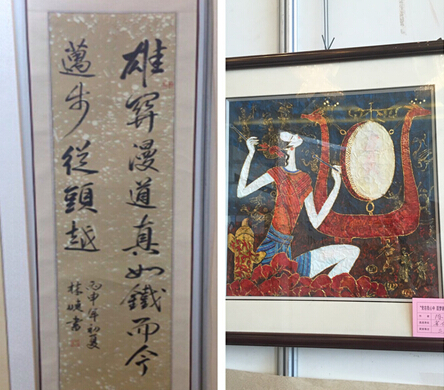 雄關漫道真如鐵而今
邁步從頭越
丙申年初夏
林曉書